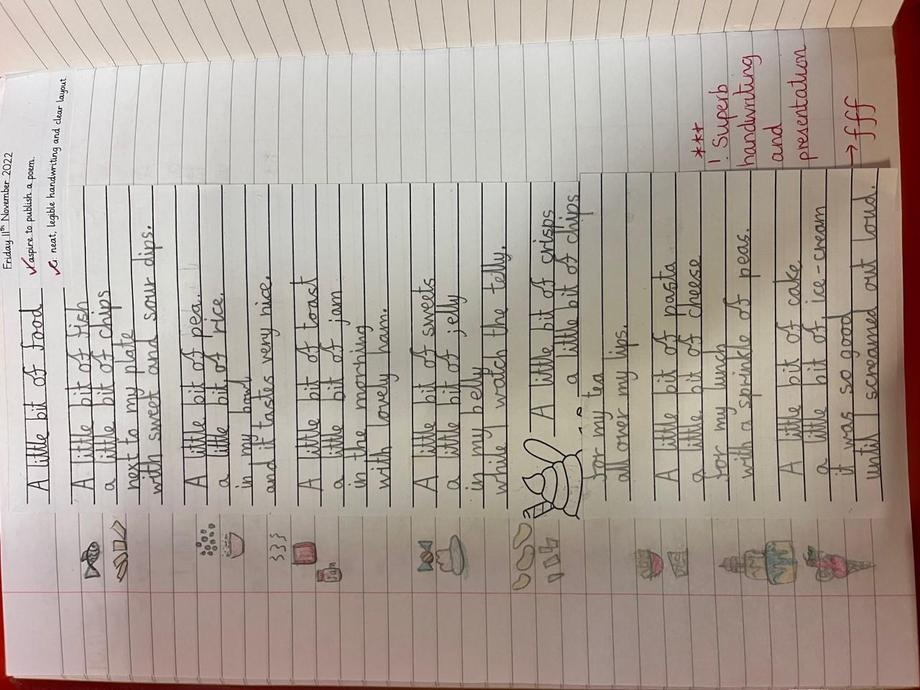 Friday 11th November 2022
aspire to publish a poem.
neat, legible handwriting and clear layout
A little bit of food
A little bit of fish
a little bit of chips
next to my plate
with sweet and sour dips.
A little bit of pea.
a little bit of rice.
in my bowl
and it tastes very nice.
A little bit of toast
a little bit of jam
in the morning
with lovely ham.
A little bit of sweets
a little bit of jelly
in my belly
while I watch the telly.
A little bit of crisps
a little bit of chips
for my tea
all over my lips.
A little bit of pasta
a little bit of cheese
for my lunch
with a sprinkle of peas.
A little bit of cake.
a little bit of ice-cream
it was so good
until I screamed out loud.
***
! Superb
handwriting
and
presentation
→ fff
Jam